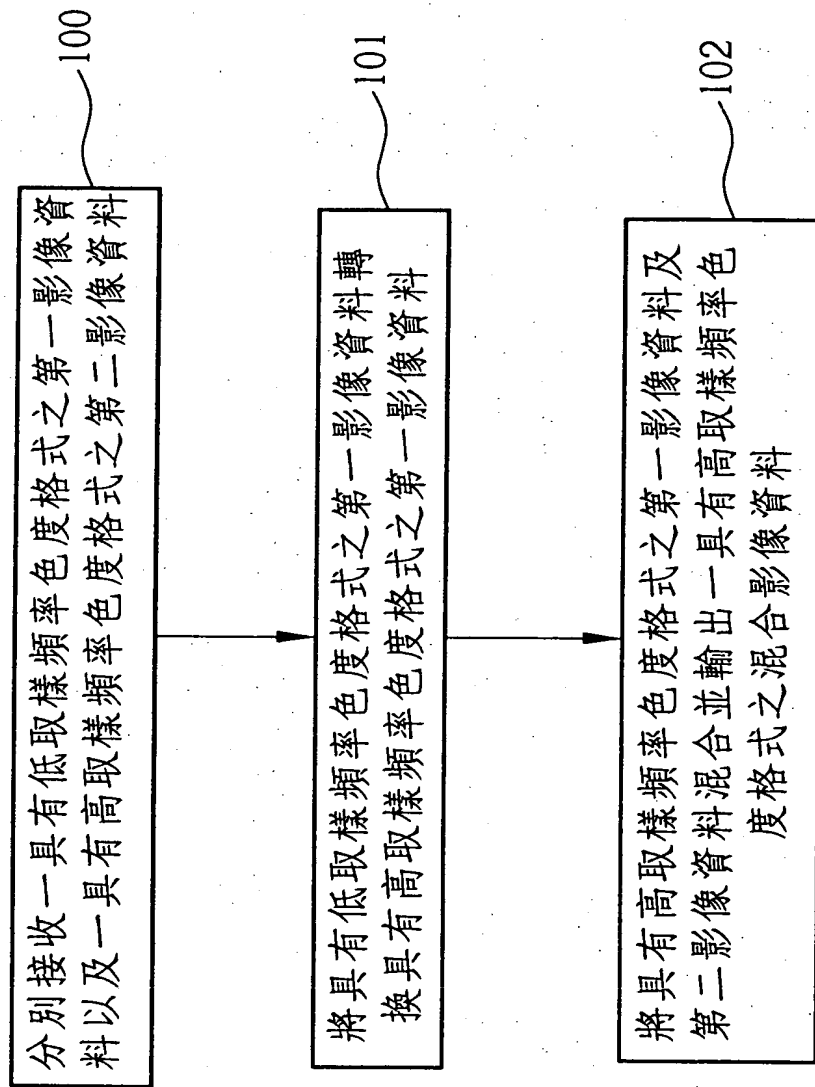 分別接收一具有低取樣頻率色度格式之第一影像資
料以及一具有高取樣頻率色度格式之第二影像資料
100
將具有低取樣頻率色度格式之第一影像資料轉
換具有高取樣頻率色度格式之第一影像資料
101
將具有高取樣頻率色度格式之第一影像資料及
第二影像資料混合並輸出一具有高取樣頻率色
度格式之混合影像資料
102